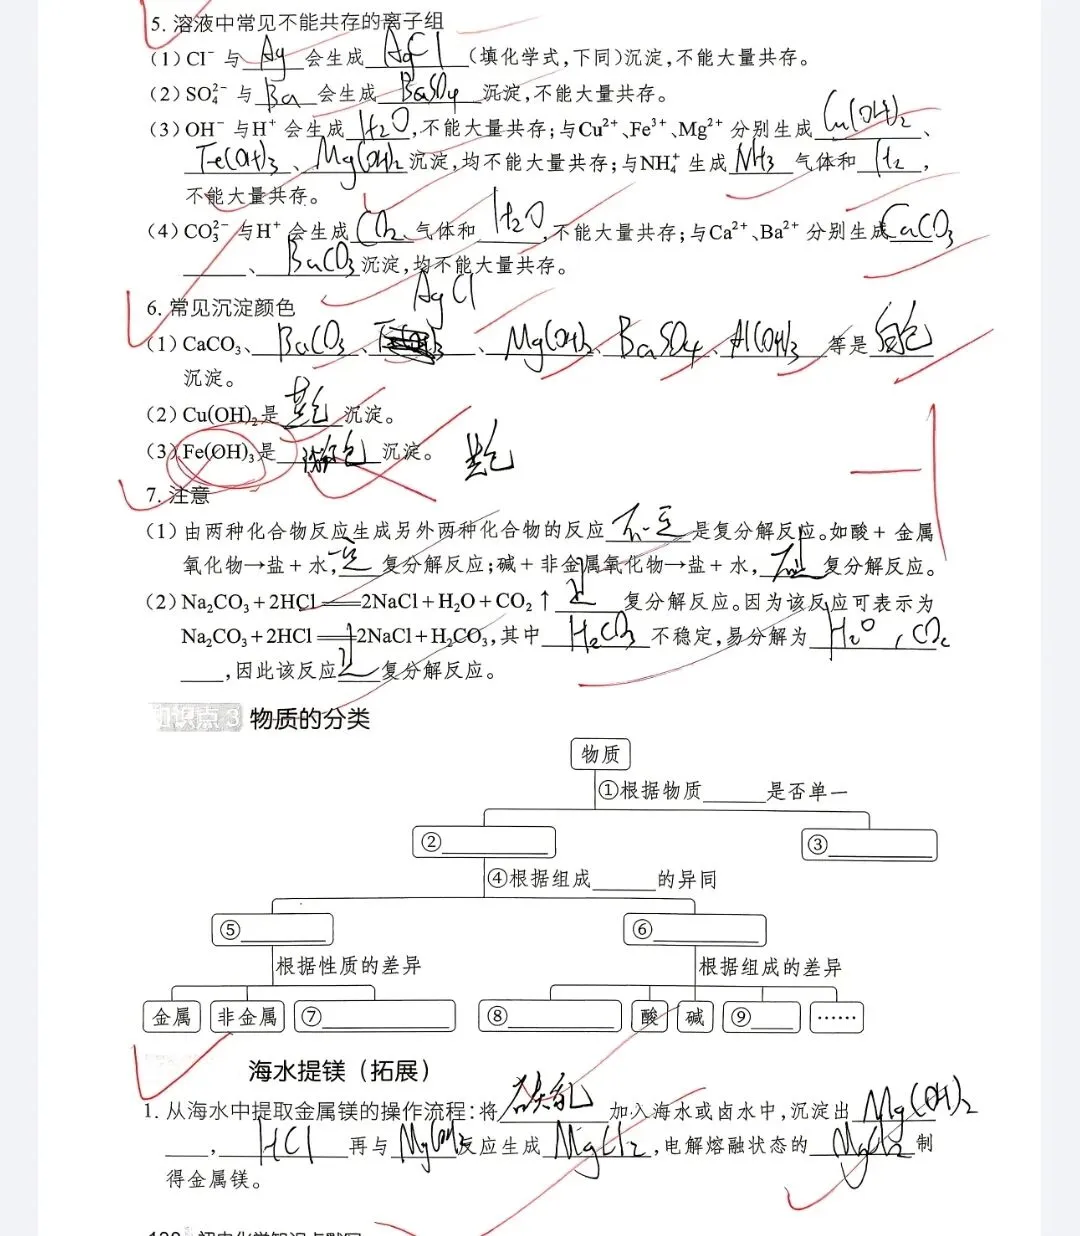 5. 溶液中常见不能共存的离子组
(1) Cl⁻ 与 Ag 会生成 AgCl (填化学式,下同)沉淀,不能大量共存。
(2) SO₄²⁻ 与 Ba 会生成 BaSO₄ 沉淀,不能大量共存。
(3) OH⁻ 与H⁺ 会生成 H₂O ,不能大量共存;与Cu²⁺、Fe³⁺、Mg²⁺ 分别生成 Cu(OH)₂ 、
Fe(OH)₃ 、 Mg(OH)₂ 沉淀,均不能大量共存;与NH₄⁺ 生成 NH₃ 气体和 H₂ ,
不能大量共存。
(4) CO₃²⁻ 与H⁺ 会生成 CO₂ 气体和 H₂O ,不能大量共存;与Ca²⁺、Ba²⁺ 分别生成 CaCO₃
、 BaCO₃ 沉淀,均不能大量共存。
AgCl
6. 常见沉淀颜色
(1) CaCO₃、 BaCO₃ 、 、 Mg(OH)₂ 、 BaSO₄ 、 Al(OH)₃ 等是 白色
沉淀。
(2) Cu(OH)₂是 蓝色 沉淀。
(3) Fe(OH)₃是 色 沉淀。
7. 注意
(1) 由两种化合物反应生成另外两种化合物的反应 不一定 是复分解反应。如酸 + 金属
氧化物→盐 + 水, 是 复分解反应;碱 + 非金属氧化物→盐 + 水, 不是 复分解反应。
(2) Na₂CO₃ + 2HCl══2NaCl + H₂O + CO₂ ↑ 是 复分解反应。因为该反应可表示为
Na₂CO₃ + 2HCl══2NaCl + H₂CO₃,其中 H₂CO₃ 不稳定,易分解为 H₂O , CO₂
,因此该反应 是 复分解反应。
知识点 3 物质的分类
物质
①根据物质______是否单一
②
③
④根据组成______的异同
⑤
⑥
根据性质的差异
根据组成的差异
金属 非金属 ⑦ ⑧ 酸 碱 ⑨ ……
海水提镁（拓展）
1. 从海水中提取金属镁的操作流程:将 石灰乳 加入海水或卤水中,沉淀出 Mg(OH)₂
, HCl 再与 Mg(OH)₂ 反应生成 MgCl₂ ,电解熔融状态的 MgCl₂ 制
得金属镁。